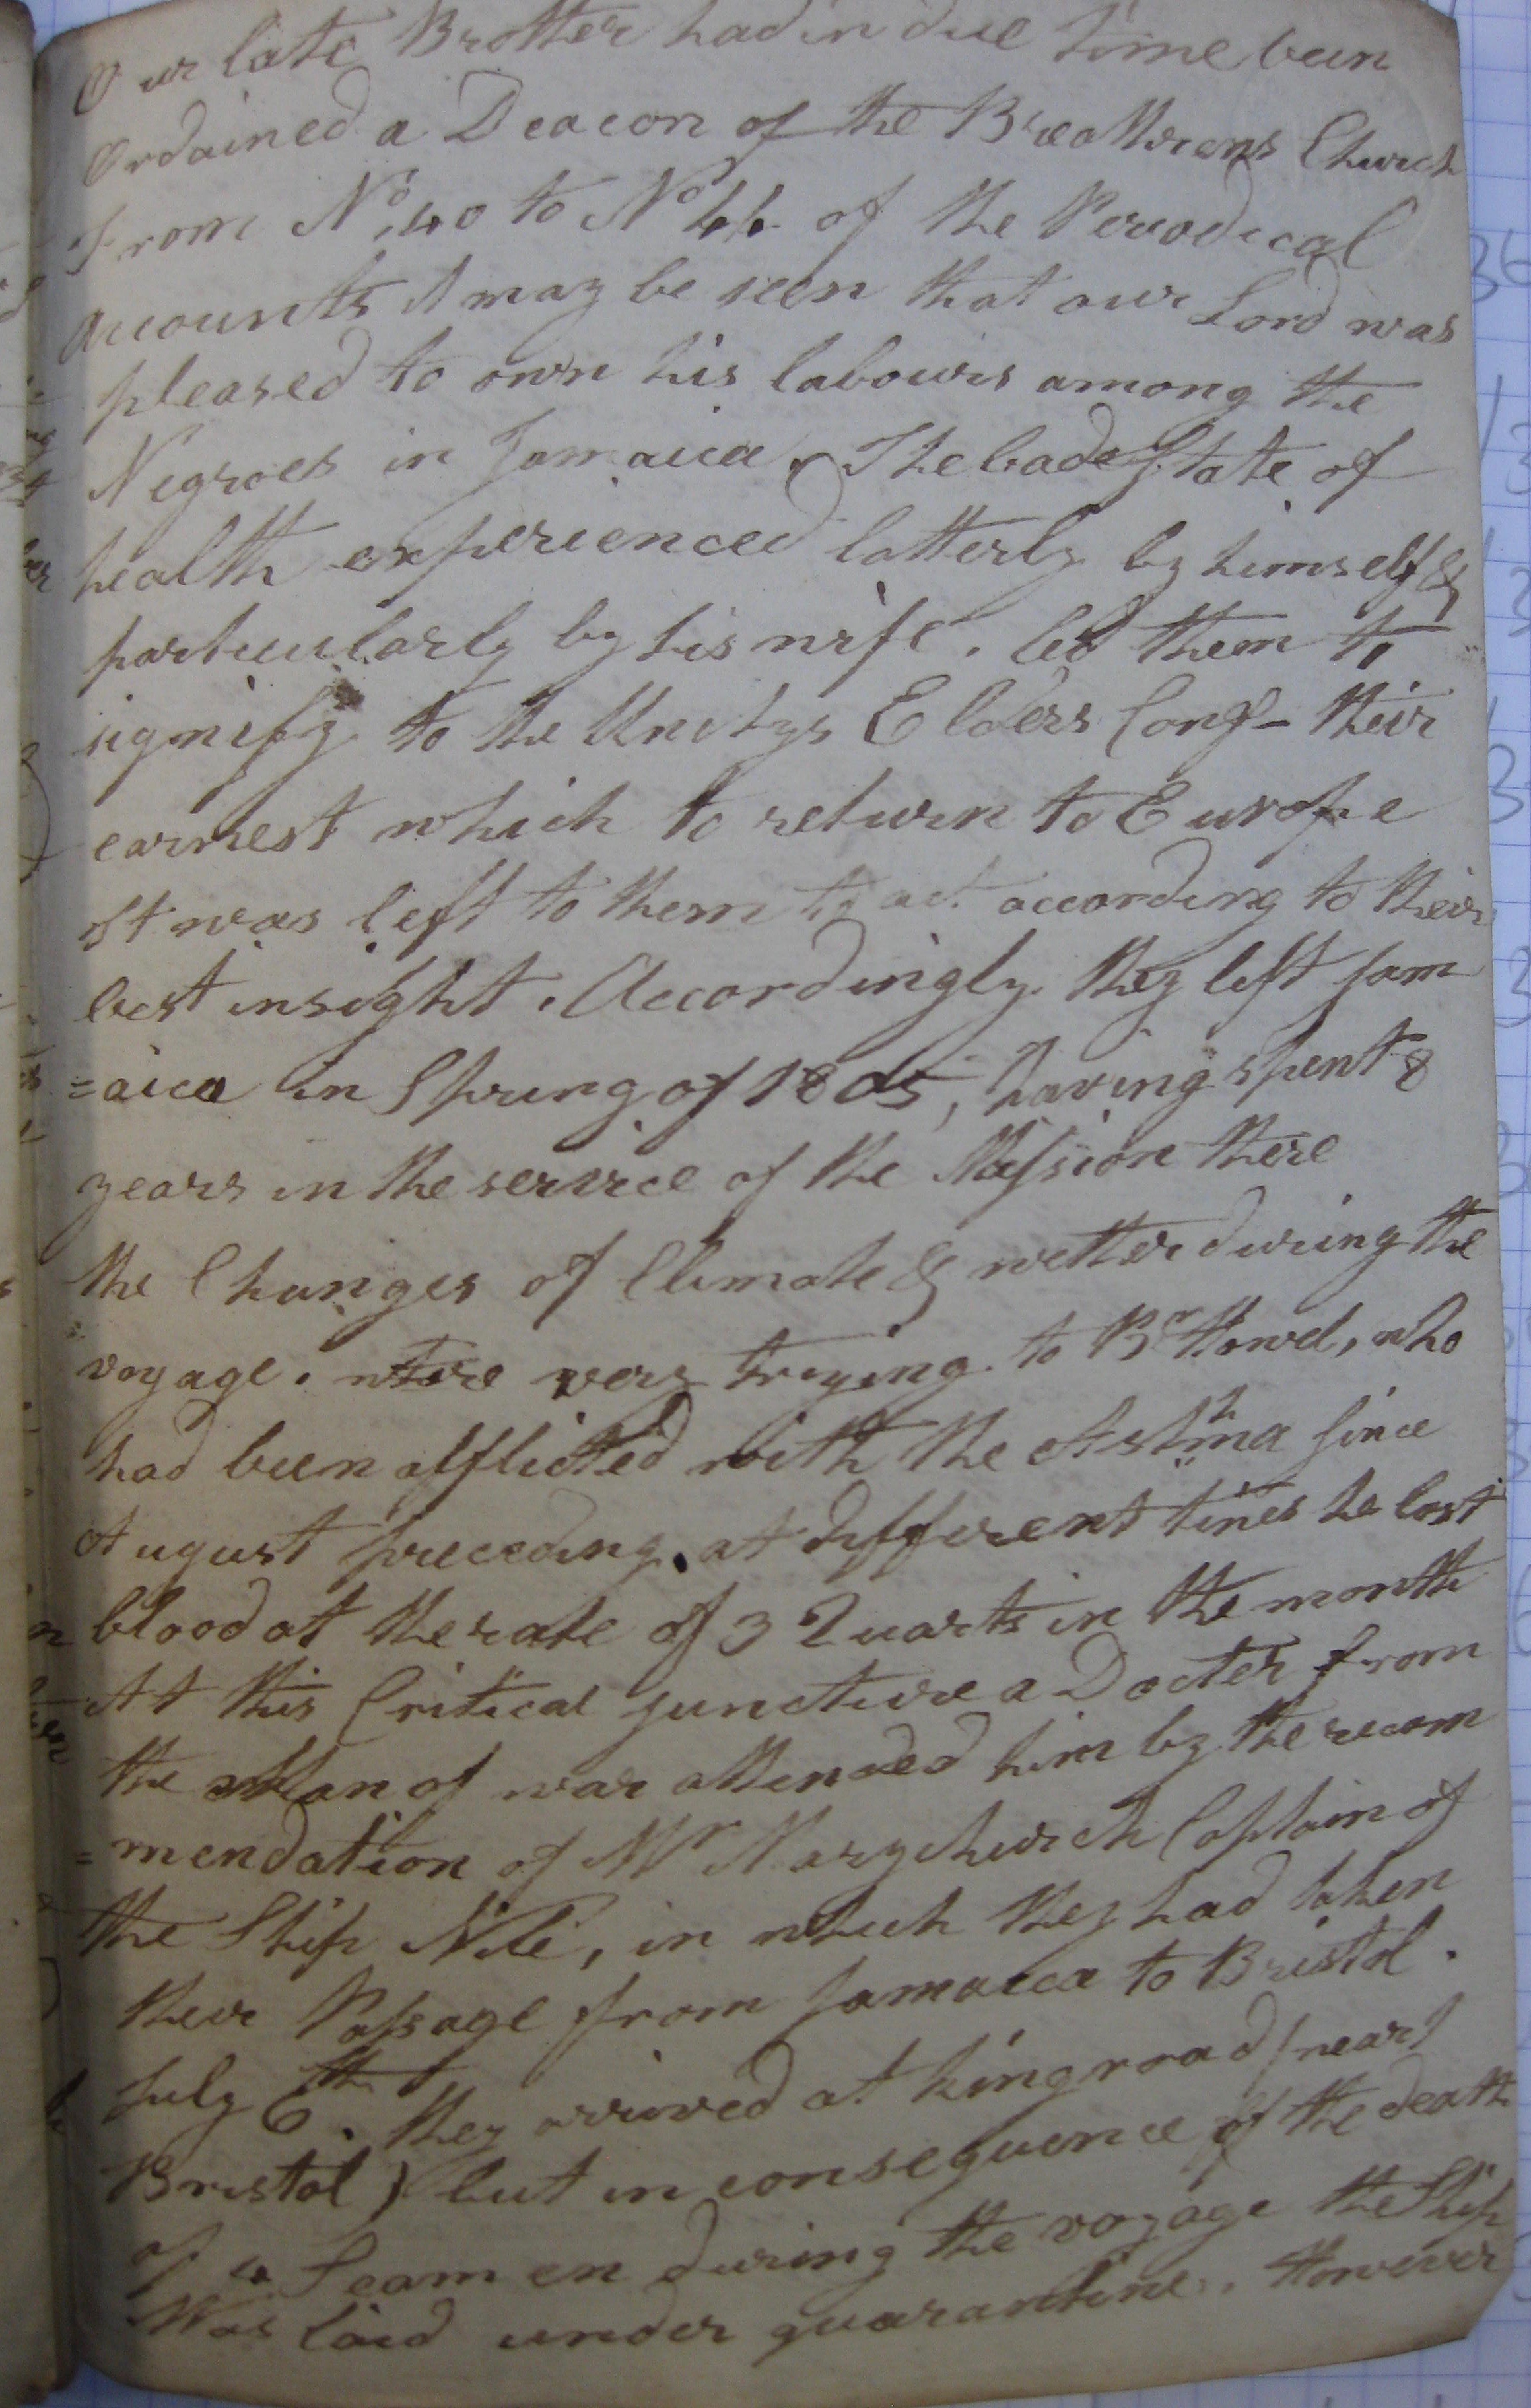 Our late Brother had in due time been
Ordained a Deacon of the Breathrens Church
From No. 40 to No 44 of the Perodical
Accounts it may be seen that our Lord was
pleased to own his labours among the
Negroes in Jamaica. The bade State of
health experienced latterly by himself &
particularly by his wife. led them to
signify to the Unitys Elders Conf- their
earnest which to return to Europe
It was left to them to act according to their
best insight. Accordingly they left Jam
=aica in Spring of 1805, having spent 8
years in the service of the Mission there
the Changes of Climate & wether during the
voyage. were very trying to Br Howel, who
had been afflicted with the Asthma since
August preceding. at different times he lost
blood at the rate of 3 Quarts in the month
At this Critical juncture a Docter from
the Man of war attended him by the recom
=mendation of Mr Marychurch Captain of
the Ship Nile, in which they had taken
their Passage from Jamaica to Bristol.
July 6th. they arrived at kingroad (near
Bristol) but in consequence of the death
of a Seamen during the voyage the Ship
Was laid under quarantine. However